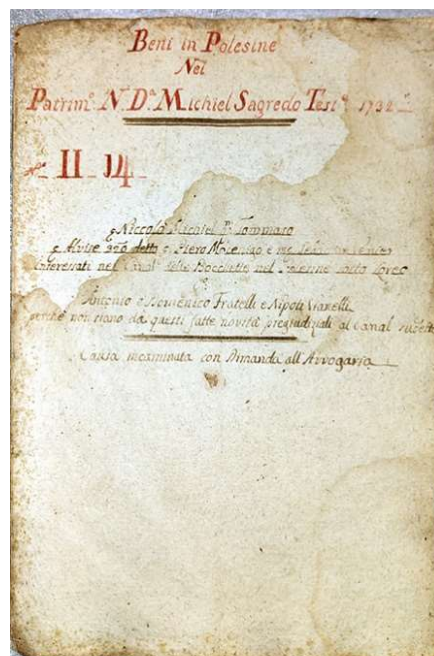 Beni in Polesine
Nel
Patrim.º N. D.ª Michiel Sagredo Test.ª 1732
II 
Niccolò Michiel Tommaso
Alvise detto e Piero Mocenigo e
interessati nel Canal delle Bocchette nel Polesine sotto Loreo
Antonio e Domenico Fratelli e Nipoti Vianelli
perchè non siano da questi fatte novità pregiudiziali al Canal sudetto
Causa incaminata con Dimanda all'Avvogaria